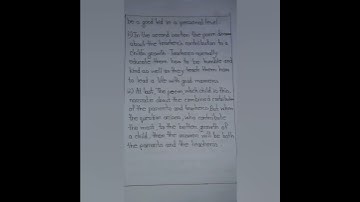 be a good kid on a personal level.
ii) In the second section the poem
about the teacher's contribution to a
child's growth. Teachers specially
educate them how to be humble and
kind as well as they teach them how
to lead a life with good manners.
iii) At last, The poem, which child is this,
narrates about the combined contribution
of the parents and teachers. But when
the question arises, who contribute
the most to the better growth of
a child, then the answer will be both
the parents and the teachers.